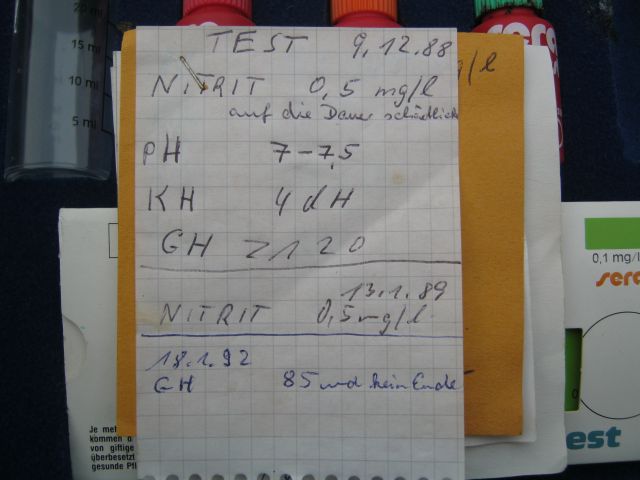 20 ml
15 ml
10 ml
5 ml
sera
TEST 9.12.88
g/l
NITRIT 0,5 mg/l
auf die Dauer schädlich
PH 7-7,5
KH 4 dH
GH >120
13.1.89
NITRIT 0,5 mg/l
18.1.92
GH 85 und kein Ende
0,1 mg/
sera
0
est
Je meh
kommen d
von giftige
übersetz
gesunde Pf